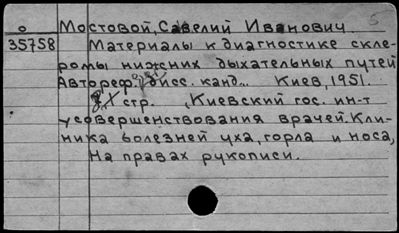 о Мостовой, Савелий Иванович.
35758 Материалы к диагностике скле-
ромы нижних дыхательных путей
Автореф. дисс. канд... Киев, 1951.
стр. , Киевский гос. ин-т
усовершенствования врачей. Кли-
ника болезней уха, горла и носа,
На правах рукописи.